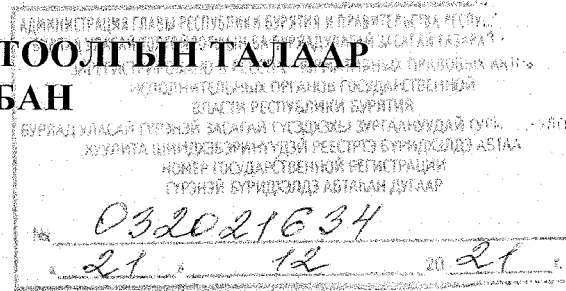 АДМИНИСТРАЦИЯ ГЛАВЫ РЕСПУБЛИКИ БУРЯТИЯ И ПРАВИТЕЛЬСТВА
ТООЛГЫН ТАЛААР
БАН
ИСПОЛНИТЕЛЬНЫХ ОРГАНОВ ГОСУДАРСТВЕННОЙ
ВЛАСТИ РЕСПУБЛИКИ БУРЯТИЯ
БУРЯАД УЛАСАЙ ГҮРЭНЭЙ ЗАСАГАЙ ГҮЙСЭДХЭХЫ ЗУРГААНУУДАЙ
ХУУЛИТА ШИИДХЭБЭРИНҮҮДЭЙ РЕЕСТРТЭ БҮРИДХЭЛДЭ АБТАА
НОМЕР ГОСУДАРСТВЕННОЙ РЕГИСТРАЦИИ
ГҮРЭНЭЙ БҮРИДХЭЛДЭ АБТАҺАН ДУГААР
№ 032021634
« 21 » 12 20 21 г.